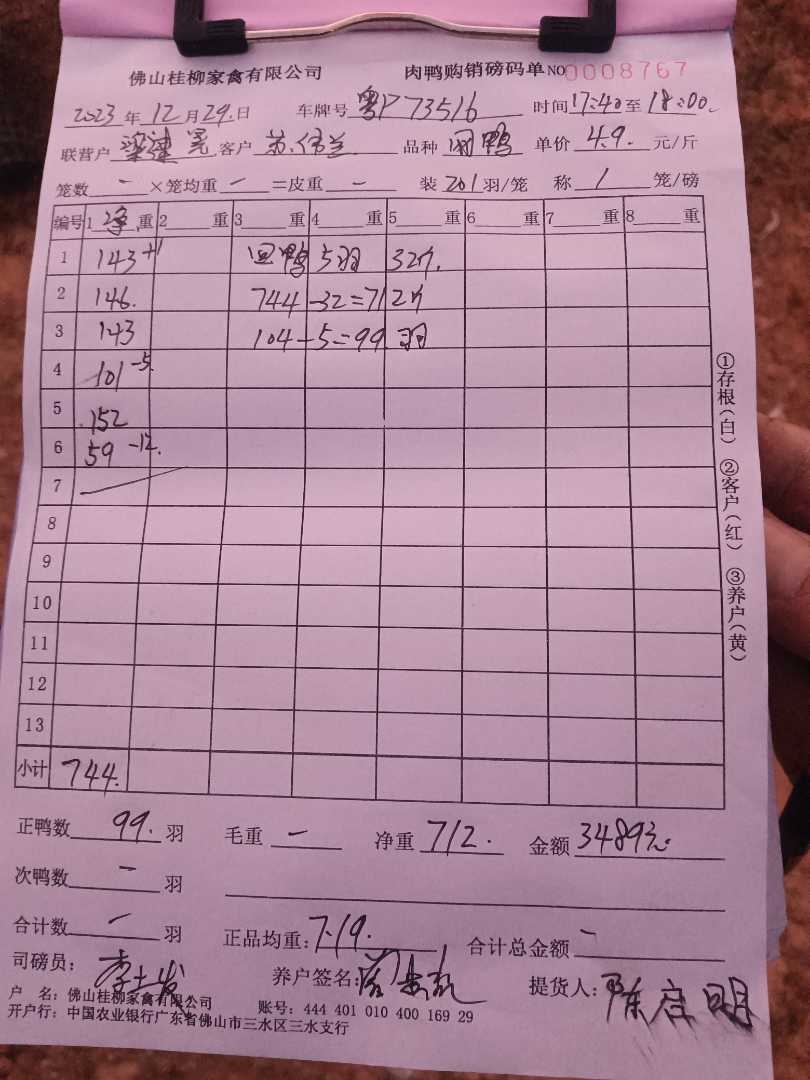 佛山桂柳家禽有限公司 肉鸭购销磅码单 NO 0008767
2023年12月29日 车牌号 粤P73516 时间17:40至18:00
联营户 客户 苏伟兰 品种 肉鸭 单价 4.9 元/斤
笼数 - ×笼均重 - =皮重 - 装 201 羽/笼 称 1 笼/磅
编号 1 净 重 2 重 3 重 4 重 5 重 6 重 7 重 8 重
1 143+1 回鸭 5羽 32斤
2 146 744-32=712斤
3 143 104-5=99羽
4 101-5
5 152
6 59-12
7
8
9
10
11
12
13
小计 744
正鸭数 99 羽 毛重 - 净重 712 金额 3489元
次鸭数 - 羽
合计数 - 羽 正品均重:7.19 合计总金额 -
司磅员: 养户签名: 提货人:
户 名:佛山桂柳家禽有限公司 账号:444 401 010 400 169 29
开户行:中国农业银行广东省佛山市三水区三水支行
①存根(白) ②客户(红) ③养户(黄)